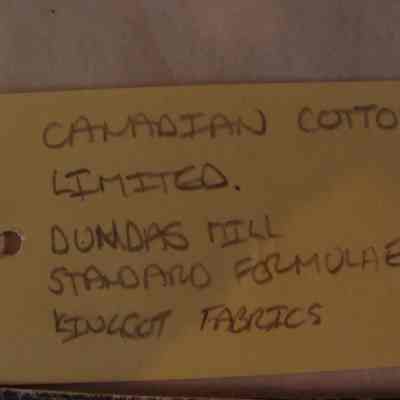 CANADIAN COTTO
LIMITED.
DUNDAS MILL
STANDARD FORMULAE
KINCOT FABRICS